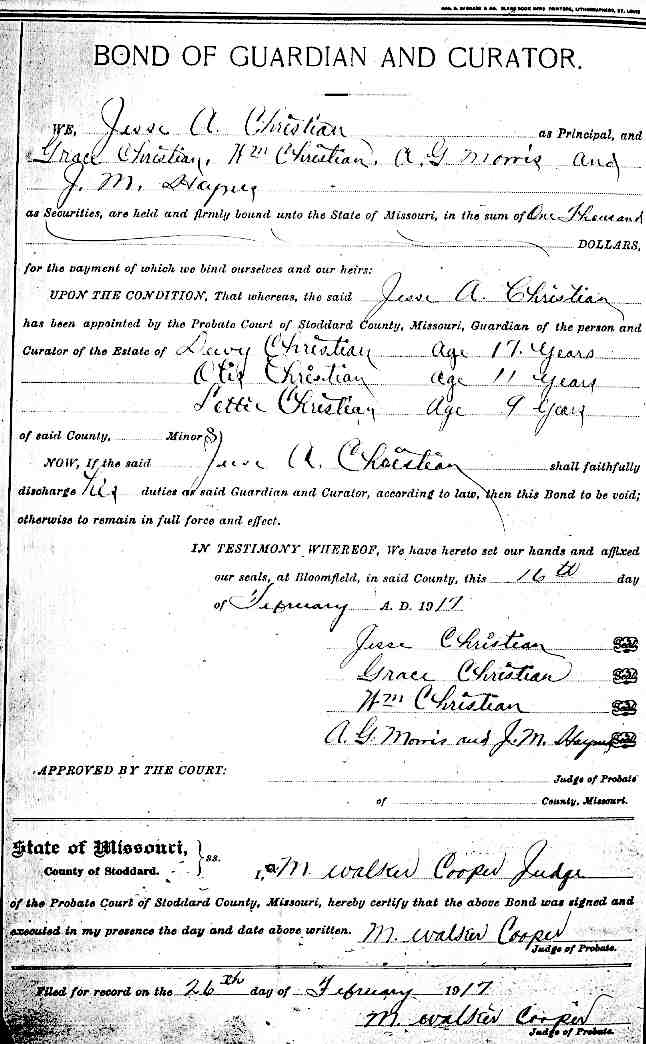 BOND OF GUARDIAN AND CURATOR.
WE, Jesse A. Christian as Principal, and
Grace Christian, Wm Christian, A. G Morris and
J. M. Haynes
as Securities, are held and firmly bound unto the State of Missouri, in the sum of One Thousand
DOLLARS,
for the payment of which we bind ourselves and our heirs:
UPON THE CONDITION, That whereas, the said Jesse A. Christian
has been appointed by the Probate Court of Stoddard County, Missouri, Guardian of the person and
Curator of the Estate of Dewy Christian Age 17 Years
Otis Christian age 11 Years
Lettie Christian Age 9 Years
of said County, Minor(S)
NOW, If the said Jesse A. Christian shall faithfully
discharge his duties as said Guardian and Curator, according to law, then this Bond to be void;
otherwise to remain in full force and effect.
IN TESTIMONY WHEREOF, We have hereto set our hands and affixed
our seals, at Bloomfield, in said County, this 16th day
of February A. D. 1917
Jesse Christian Seal
Grace Christian Seal
Wm Christian Seal
A. G. Morris and J. M. Haynes Seal
APPROVED BY THE COURT:
Judge of Probate
of County, Missouri.
State of Missouri, } ss.
County of Stoddard. I, M. Walker Cooper Judge
of the Probate Court of Stoddard County, Missouri, hereby certify that the above Bond was signed and
executed in my presence the day and date above written. M. Walker Cooper
Judge of Probate.
Filed for record on the 26th day of February 1917
M. Walker Cooper
Judge of Probate.